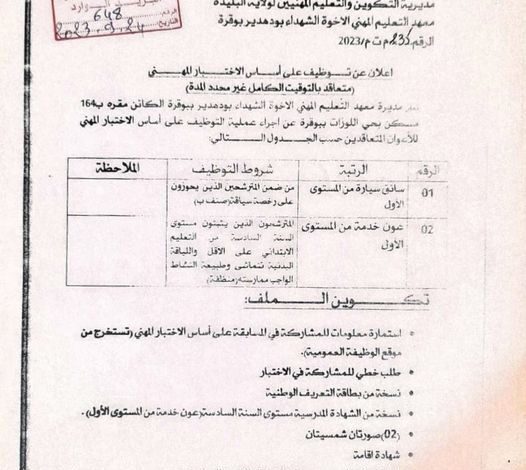 البريد الوارد
رقم: 648
التاريخ: 2023.9.24
مديرية التكوين والتعليم المهنيين لولاية البليدة
معهد التعليم المهني الاخوة الشهداء بودهدير بوقرة
الرقم 235/م ت م/2023
اعلان عن توظيف على أساس الاختبار المهني
(متعاقد بالتوقيت الكامل غير محدد المدة)
مديرة معهد التعليم المهني الاخوة الشهداء بودهدير ببوقرة الكائن مقره ب164
مسكن بحي اللوزات ببوقرة عن اجراء عملية التوظيف على أساس الاختبار المهني
للأعوان المتعاقدين حسب الجدول التالي:
الرقم الرتبة شروط التوظيف الملاحظة
01 سائق سيارة من المستوى الأول من ضمن المترشحين الذين يحوزون
على رخصة سياقة (صنف ب)
02 عون خدمة من المستوى الأول المترشحون الذين يثبتون مستوى
السنة السادسة من التعليم
الابتدائي على الاقل واللياقة
البدنية تتماشى وطبيعة النشاط
الواجب ممارسته (منظفة)
تكوين الملف:
استمارة معلومات للمشاركة في المسابقة على أساس الاختبار المهني (تستخرج من
موقع الوظيفة العمومية).
طلب خطي للمشاركة في الاختبار
نسخة من بطاقة التعريف الوطنية
نسخة من الشهادة المدرسية مستوى السنة السادسة (عون خدمة من المستوى الأول).
(02) صورتان شمسيتان
شهادة اقامة